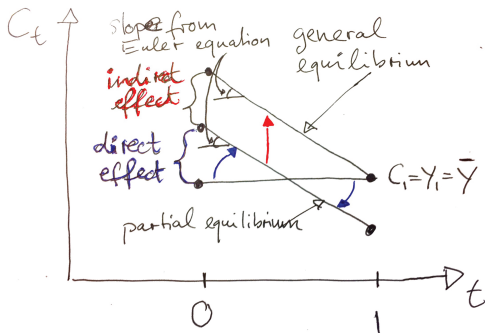 Cₜ
slope from
Euler equation
general
equilibrium
indirect
effect
direct
effect
C₁=Y₁=Ȳ
partial equilibrium
0
1
t